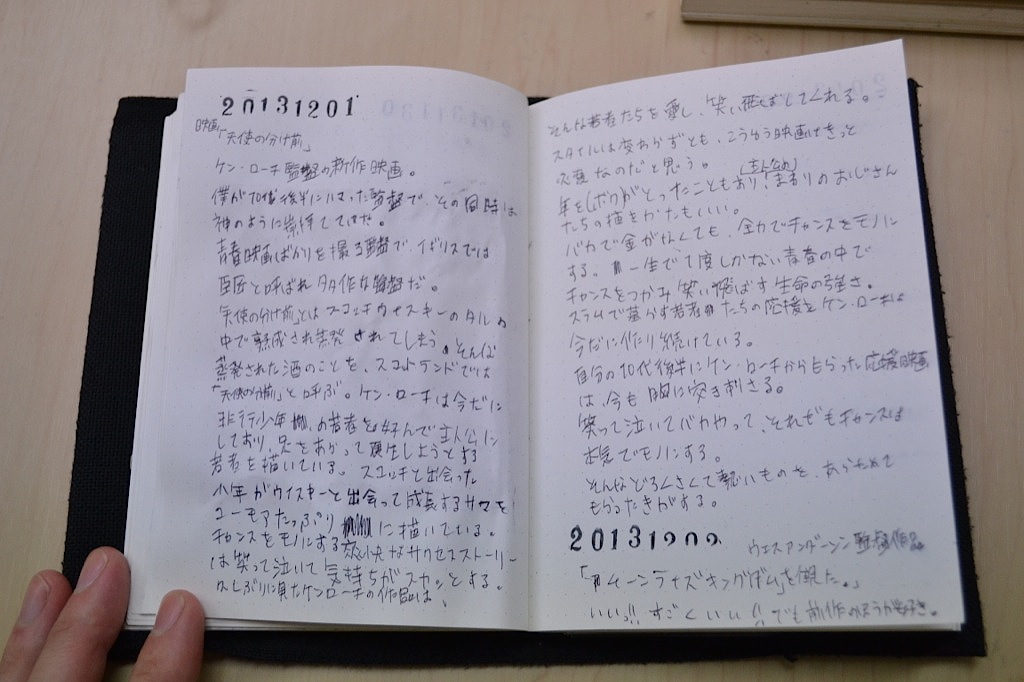 20131201
映画「天使の分け前」
ケン・ローチ監督の新作映画。
僕が10代後半にハマった監督で、その同時は
神のように崇拝してました。
青春映画ばかりを撮る監督で、イギリスでは
巨匠と呼ばれ多作な監督だ。
「天使の分け前」とはスコッチウイスキーのタルの
中で熟成され蒸発されてしまう。そんな
蒸発された酒のことを、スコットランドでは
「天使の分前」と呼ぶ。ケン・ローチは今だに
非行少年の若者を好んで主人公に
しており、足をあらって更生しようとする
若者を描いている。スコッチと出会った
少年がウイスキーと出会って成長するサマを
ユーモアたっぷりに描いている。
チャンスをモノにする痛快なサクセスストーリー
は笑って泣いて気持ちがスカッとする。
久しぶりに見たケンローチの作品は、
そんな若者たちを愛し、笑い飛ばしてくれる。
スタイルは変わらずとも、こうゆう映画はきっと
必要なのだと思う。
年を(ボクが)とったこともあり、(主人公の)まわりのおじさん
たちの描きかたもいい。
バカで金がなくても、全力でチャンスをモノに
する。一生で1度しかない青春の中で
チャンスをつかみ笑い飛ばす生命の強さ。
スラムで暮らす若者たちの応援をケン・ローチは
今だに作り続けている。
自分の10代後半にケン・ローチからもらった応援映画
は、今も胸に突き刺さる。
笑って泣いてバカやって、それでもチャンスは
本気でモノにする。
そんなどろくさくて熱いものを、あらためて
もらったきがする。
201312 ウェスアンダーソン監督作品
「ムーンライズキングダム」を観た。
いい!! すごくいい!! でも前作のほうが好き。